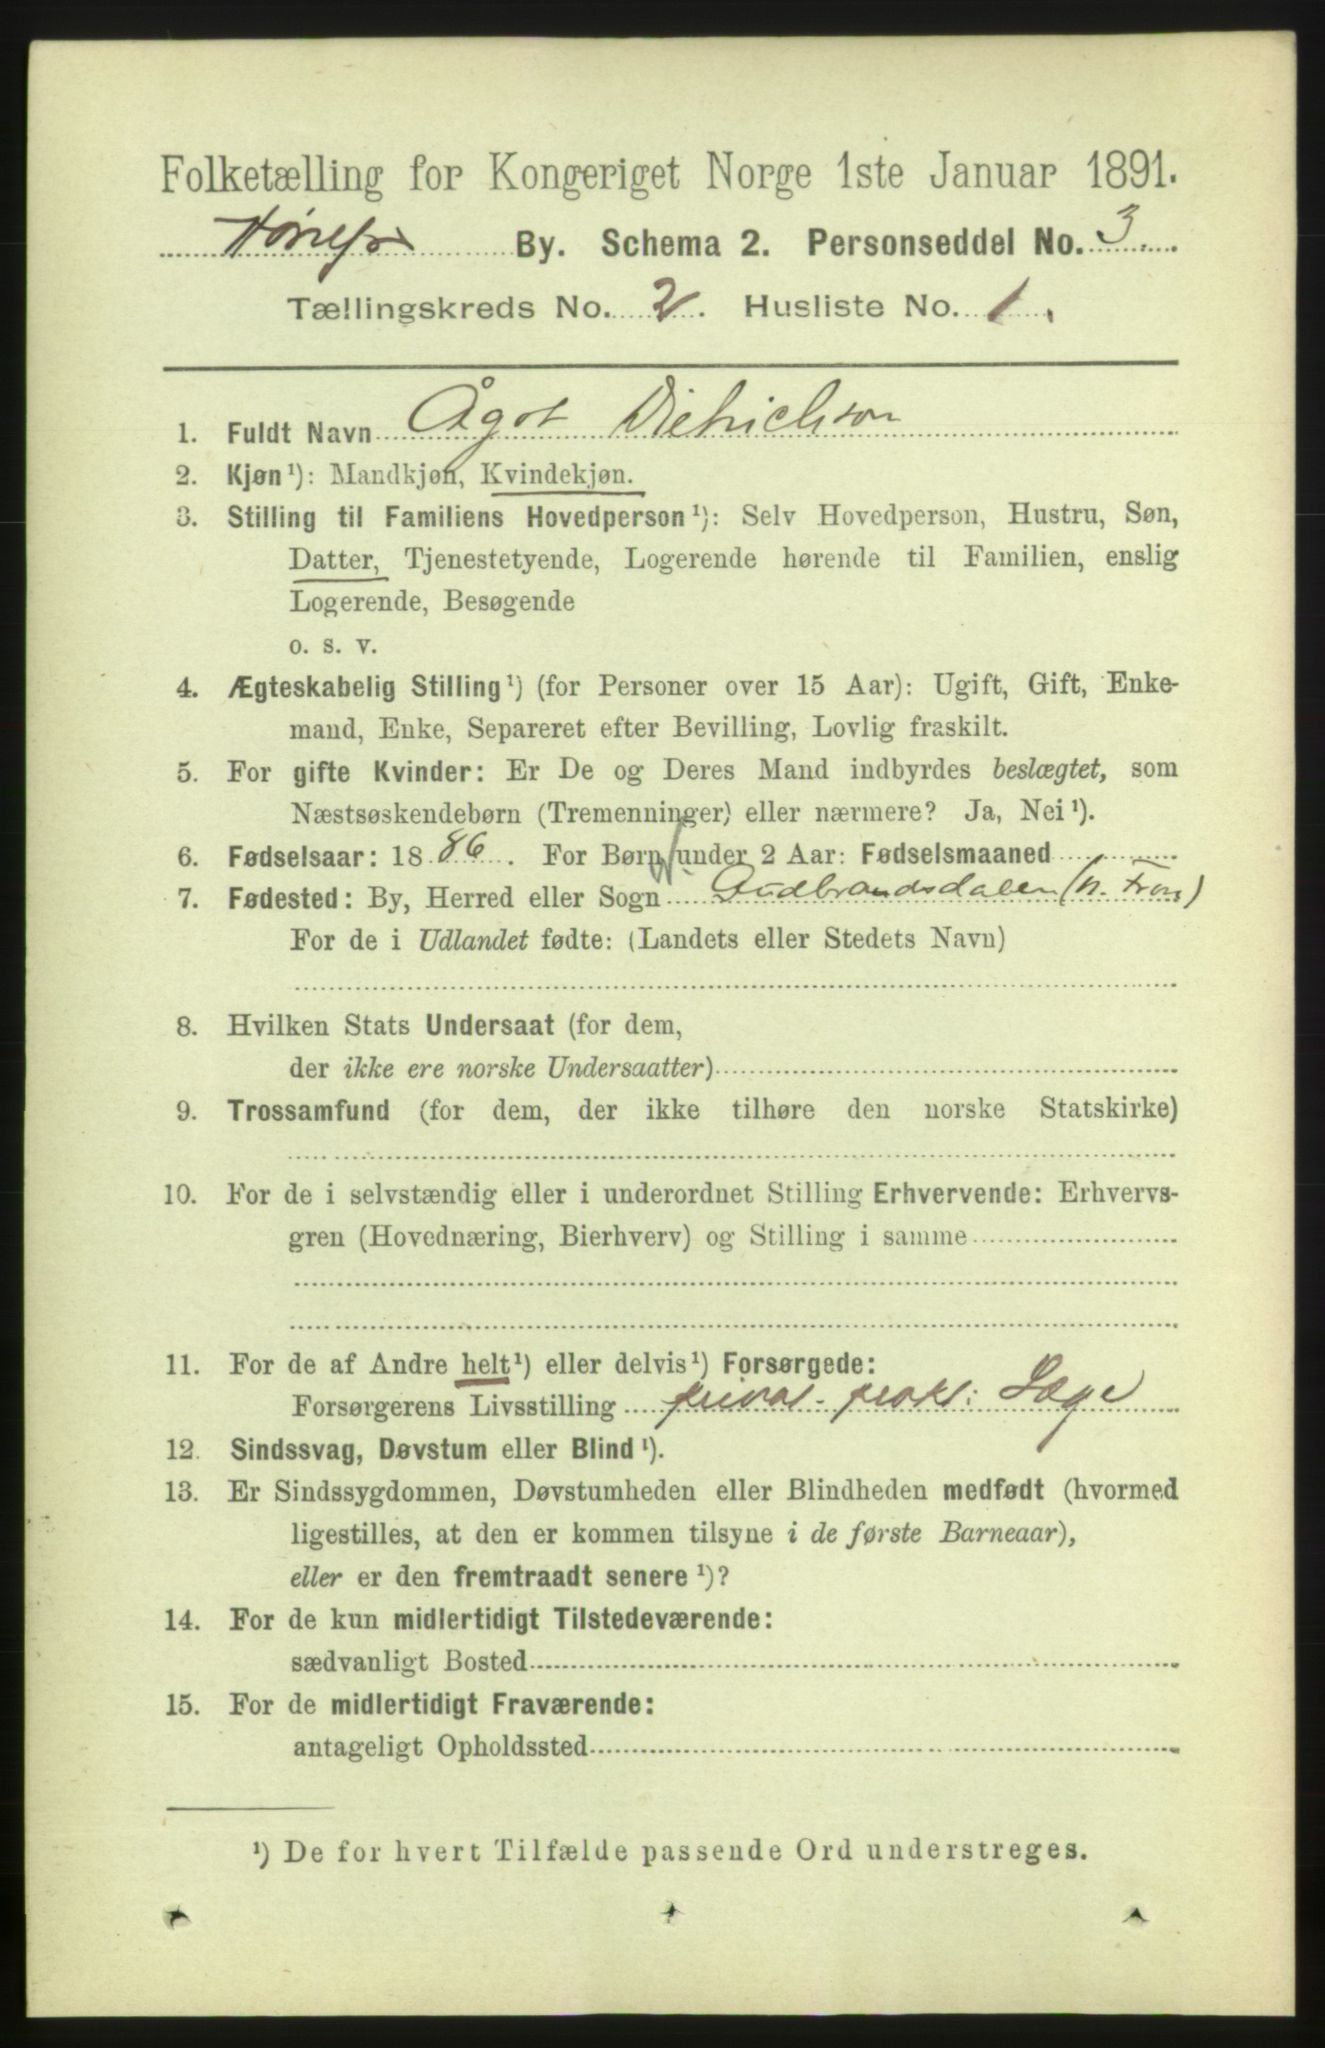 Folketælling for Kongeriget Norge 1ste Januar 1891.
Hønefos By. Schema 2. Personseddel No. 3.
Tællingskreds No. 2. Husliste No. 1.
1. Fuldt Navn Ågot Dietrichson
2. Kjøn¹): Mandkjøn, Kvindekjøn.
3. Stilling til Familiens Hovedperson¹): Selv Hovedperson, Hustru, Søn,
Datter, Tjenestetyende, Logerende hørende til Familien, enslig
Logerende, Besøgende
o. s. v.
4. Ægteskabelig Stilling¹) (for Personer over 15 Aar): Ugift, Gift, Enke-
mand, Enke, Separeret efter Bevilling, Lovlig fraskilt.
5. For gifte Kvinder: Er De og Deres Mand indbyrdes beslægtet, som
Næstsøskendebørn (Tremenninger) eller nærmere? Ja, Nei¹).
6. Fødselsaar: 1886. For Børn under 2 Aar: Fødselsmaaned
7. Fødested: By, Herred eller Sogn Gudbrandsdalen (N. Fron)
For de i Udlandet fødte: (Landets eller Stedets Navn)
8. Hvilken Stats Undersaat (for dem,
der ikke ere norske Undersaatter)
9. Trossamfund (for dem, der ikke tilhøre den norske Statskirke)
10. For de i selvstændig eller i underordnet Stilling Erhvervende: Erhvervs-
gren (Hovednæring, Bierhverv) og Stilling i samme
11. For de af Andre helt¹) eller delvis¹) Forsørgede:
Forsørgerens Livsstilling privat-prakt: Læge
12. Sindssvag, Døvstum eller Blind¹).
13. Er Sindssygdommen, Døvstumheden eller Blindheden medfødt (hvormed
ligestilles, at den er kommen tilsyne i de første Barneaar),
eller er den fremtraadt senere¹)?
14. For de kun midlertidigt Tilstedeværende:
sædvanligt Bosted
15. For de midlertidigt Fraværende:
antageligt Opholdssted
¹) De for hvert Tilfælde passende Ord understreges.